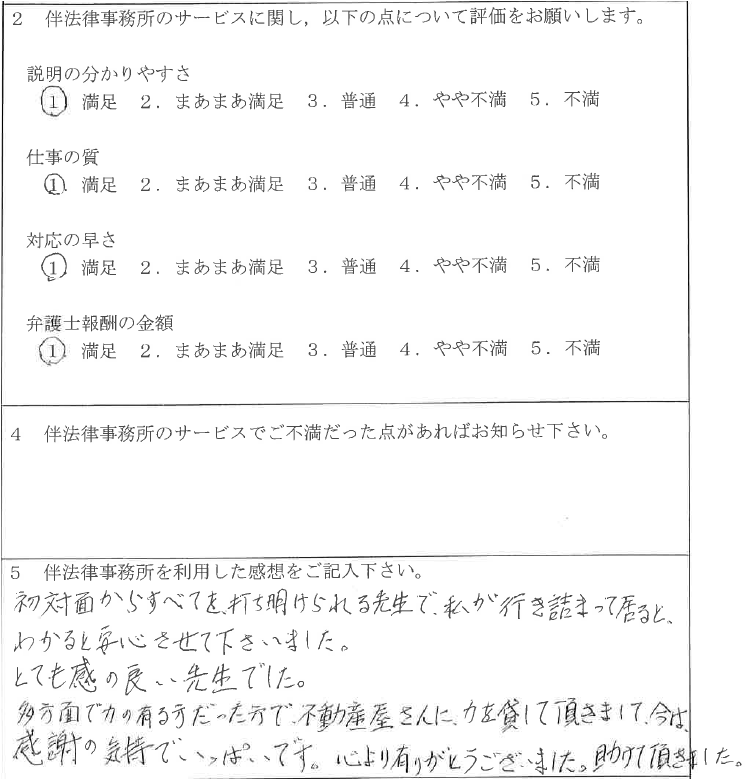 2　伴法律事務所のサービスに関し，以下の点について評価をお願いします。
説明の分かりやすさ
1　満足　2．まあまあ満足　3．普通　4．やや不満　5．不満
仕事の質
1　満足　2．まあまあ満足　3．普通　4．やや不満　5．不満
対応の早さ
1　満足　2．まあまあ満足　3．普通　4．やや不満　5．不満
弁護士報酬の金額
1　満足　2．まあまあ満足　3．普通　4．やや不満　5．不満
4　伴法律事務所のサービスでご不満だった点があればお知らせ下さい。
5　伴法律事務所を利用した感想をご記入下さい。
初対面からすべてを、打ち明けられる先生で、私が行き詰まって居ると、
わかると安心させて下さいました。
とても感の良い先生でした。
多方面で力の有る方だった方で、不動産屋さんに、力を貸して頂きまして、今は、
感謝の気持でいっぱいです。心より有りがとうございました。助けて頂きました。